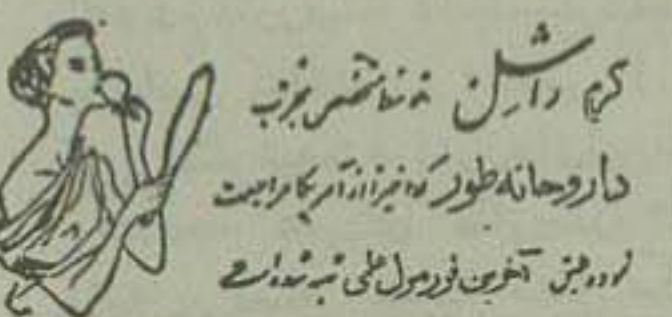 کرم راشل نه تنها متخصص مجرب
داروخانه طور که اخیراً از آمریکا مراجعت
نموده طبق آخرین فورمول علمی تهیه شده است